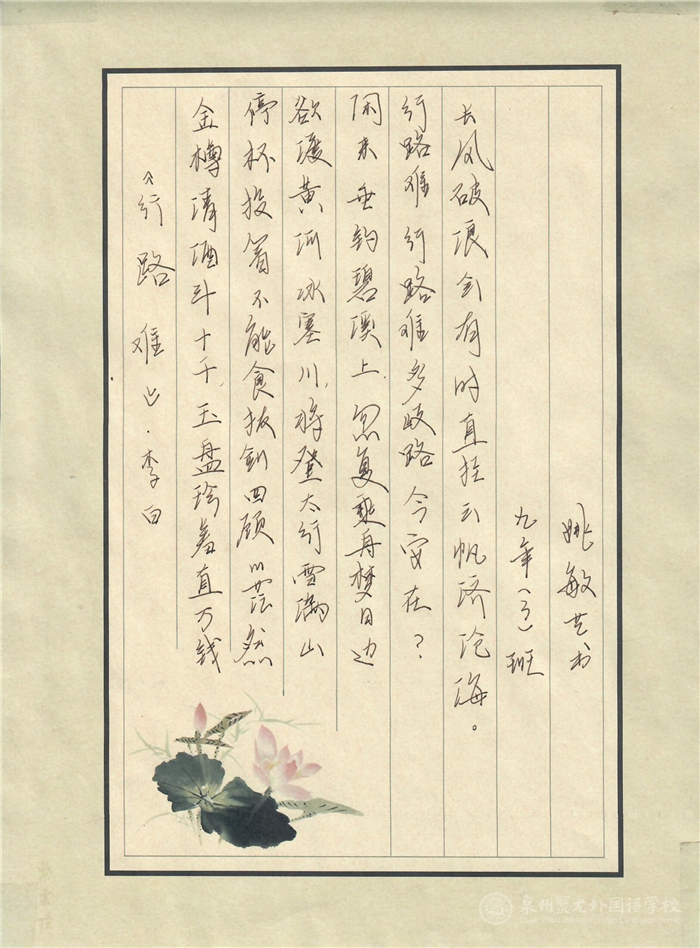 《行路难》·李白
金樽清酒斗十千,玉盘珍羞直万钱
停杯投箸不能食拔剑四顾心茫然
欲渡黄河冰塞川,将登太行雪满山
闲来垂钓碧溪上.忽复乘舟梦日边
行路难行路难多歧路今安在?
长风破浪会有时直挂云帆济沧海。
九年(3)班
姚敏艺书
泉州聚龙外国语学校